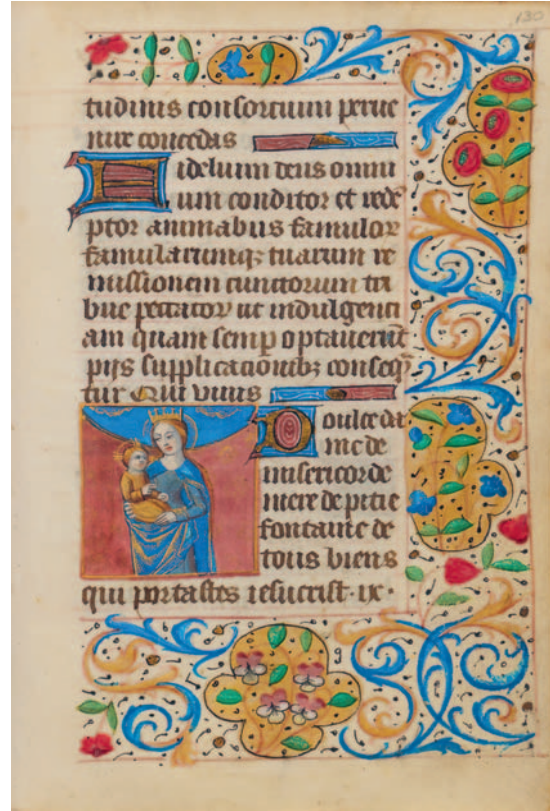 130
tudinis consortium perue
nire concedas
Fidelium deus omni
um conditor et redē
ptor animabus famuloꝝ
famularumqꝫ tuarum re
missionem cunctorum tri
bue peccatoꝝ ut indulgenti
am quam semp optauerūt
pijs supplicationibꝫ conseqn̄
tur Qui viuis
Doulce da
me de
misericorde
mere de pitie
fontaine de
tous biens
qui portastes iesucrist · ix ·